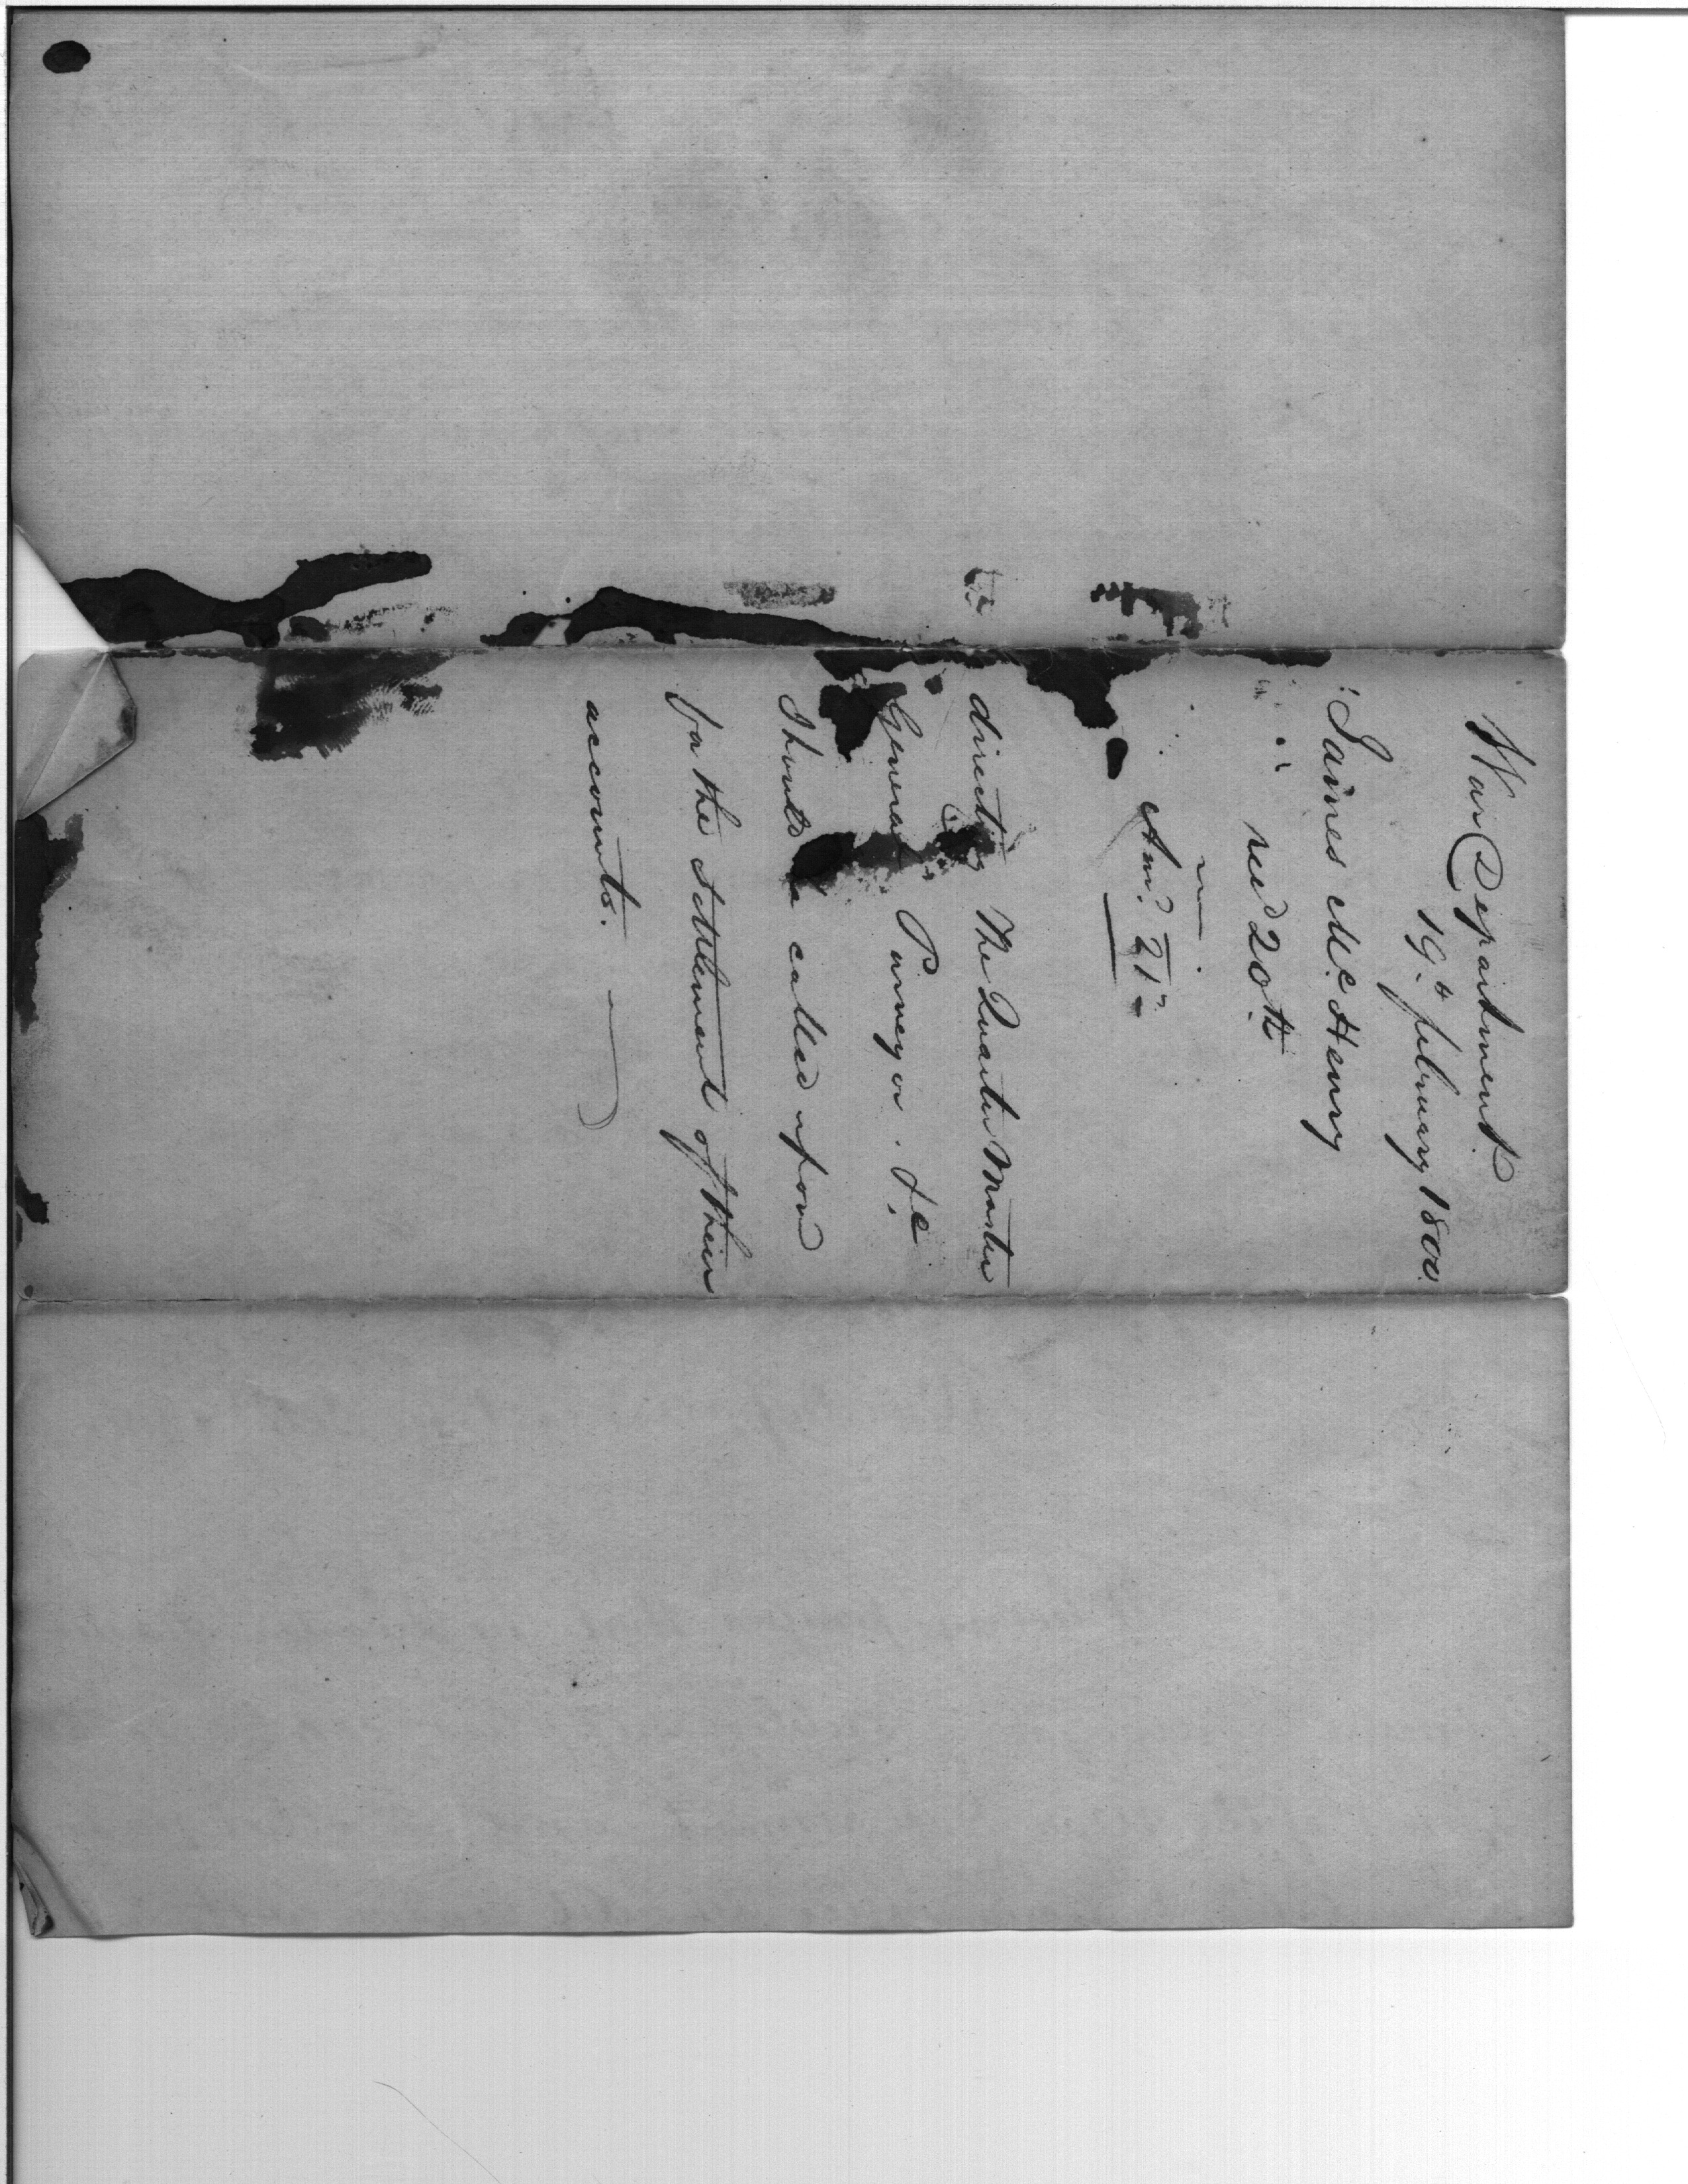 War Department
19th february 1800.
James McHenry
recd 20th
Ansd. 21st
directing The Quarter Master
General Purveyor. &c
Should be called upon
for the Settlement of their
accounts.